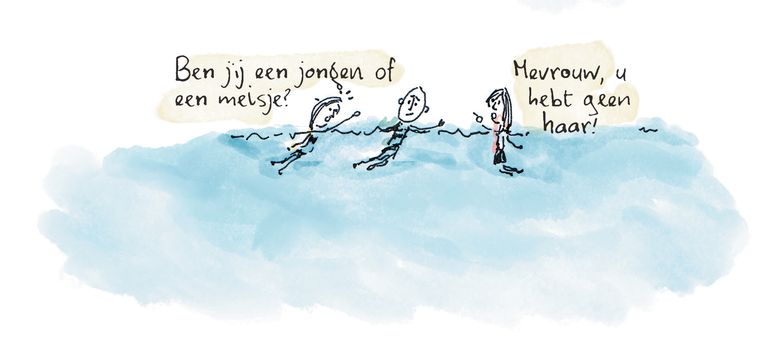 Ben jij een jongen of
een meisje?
Mevrouw, u
hebt geen
haar!